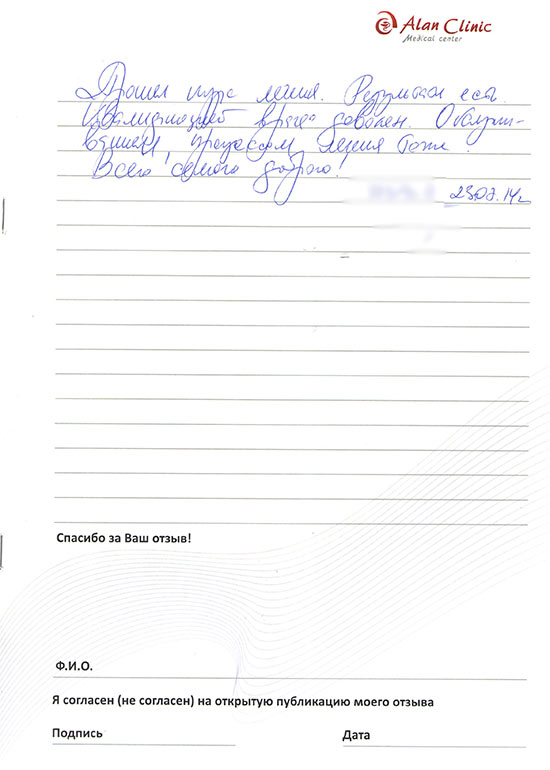 Alan Clinic
Medical center
Прошел курс лечения. Результат есть.
Квалификацией врача доволен. Обслужи-
ванием, процессом лечения тоже.
Всего самого доброго!
23.07.14г
Спасибо за Ваш отзыв!
Ф.И.О.
Я согласен (не согласен) на открытую публикацию моего отзыва
Подпись
Дата